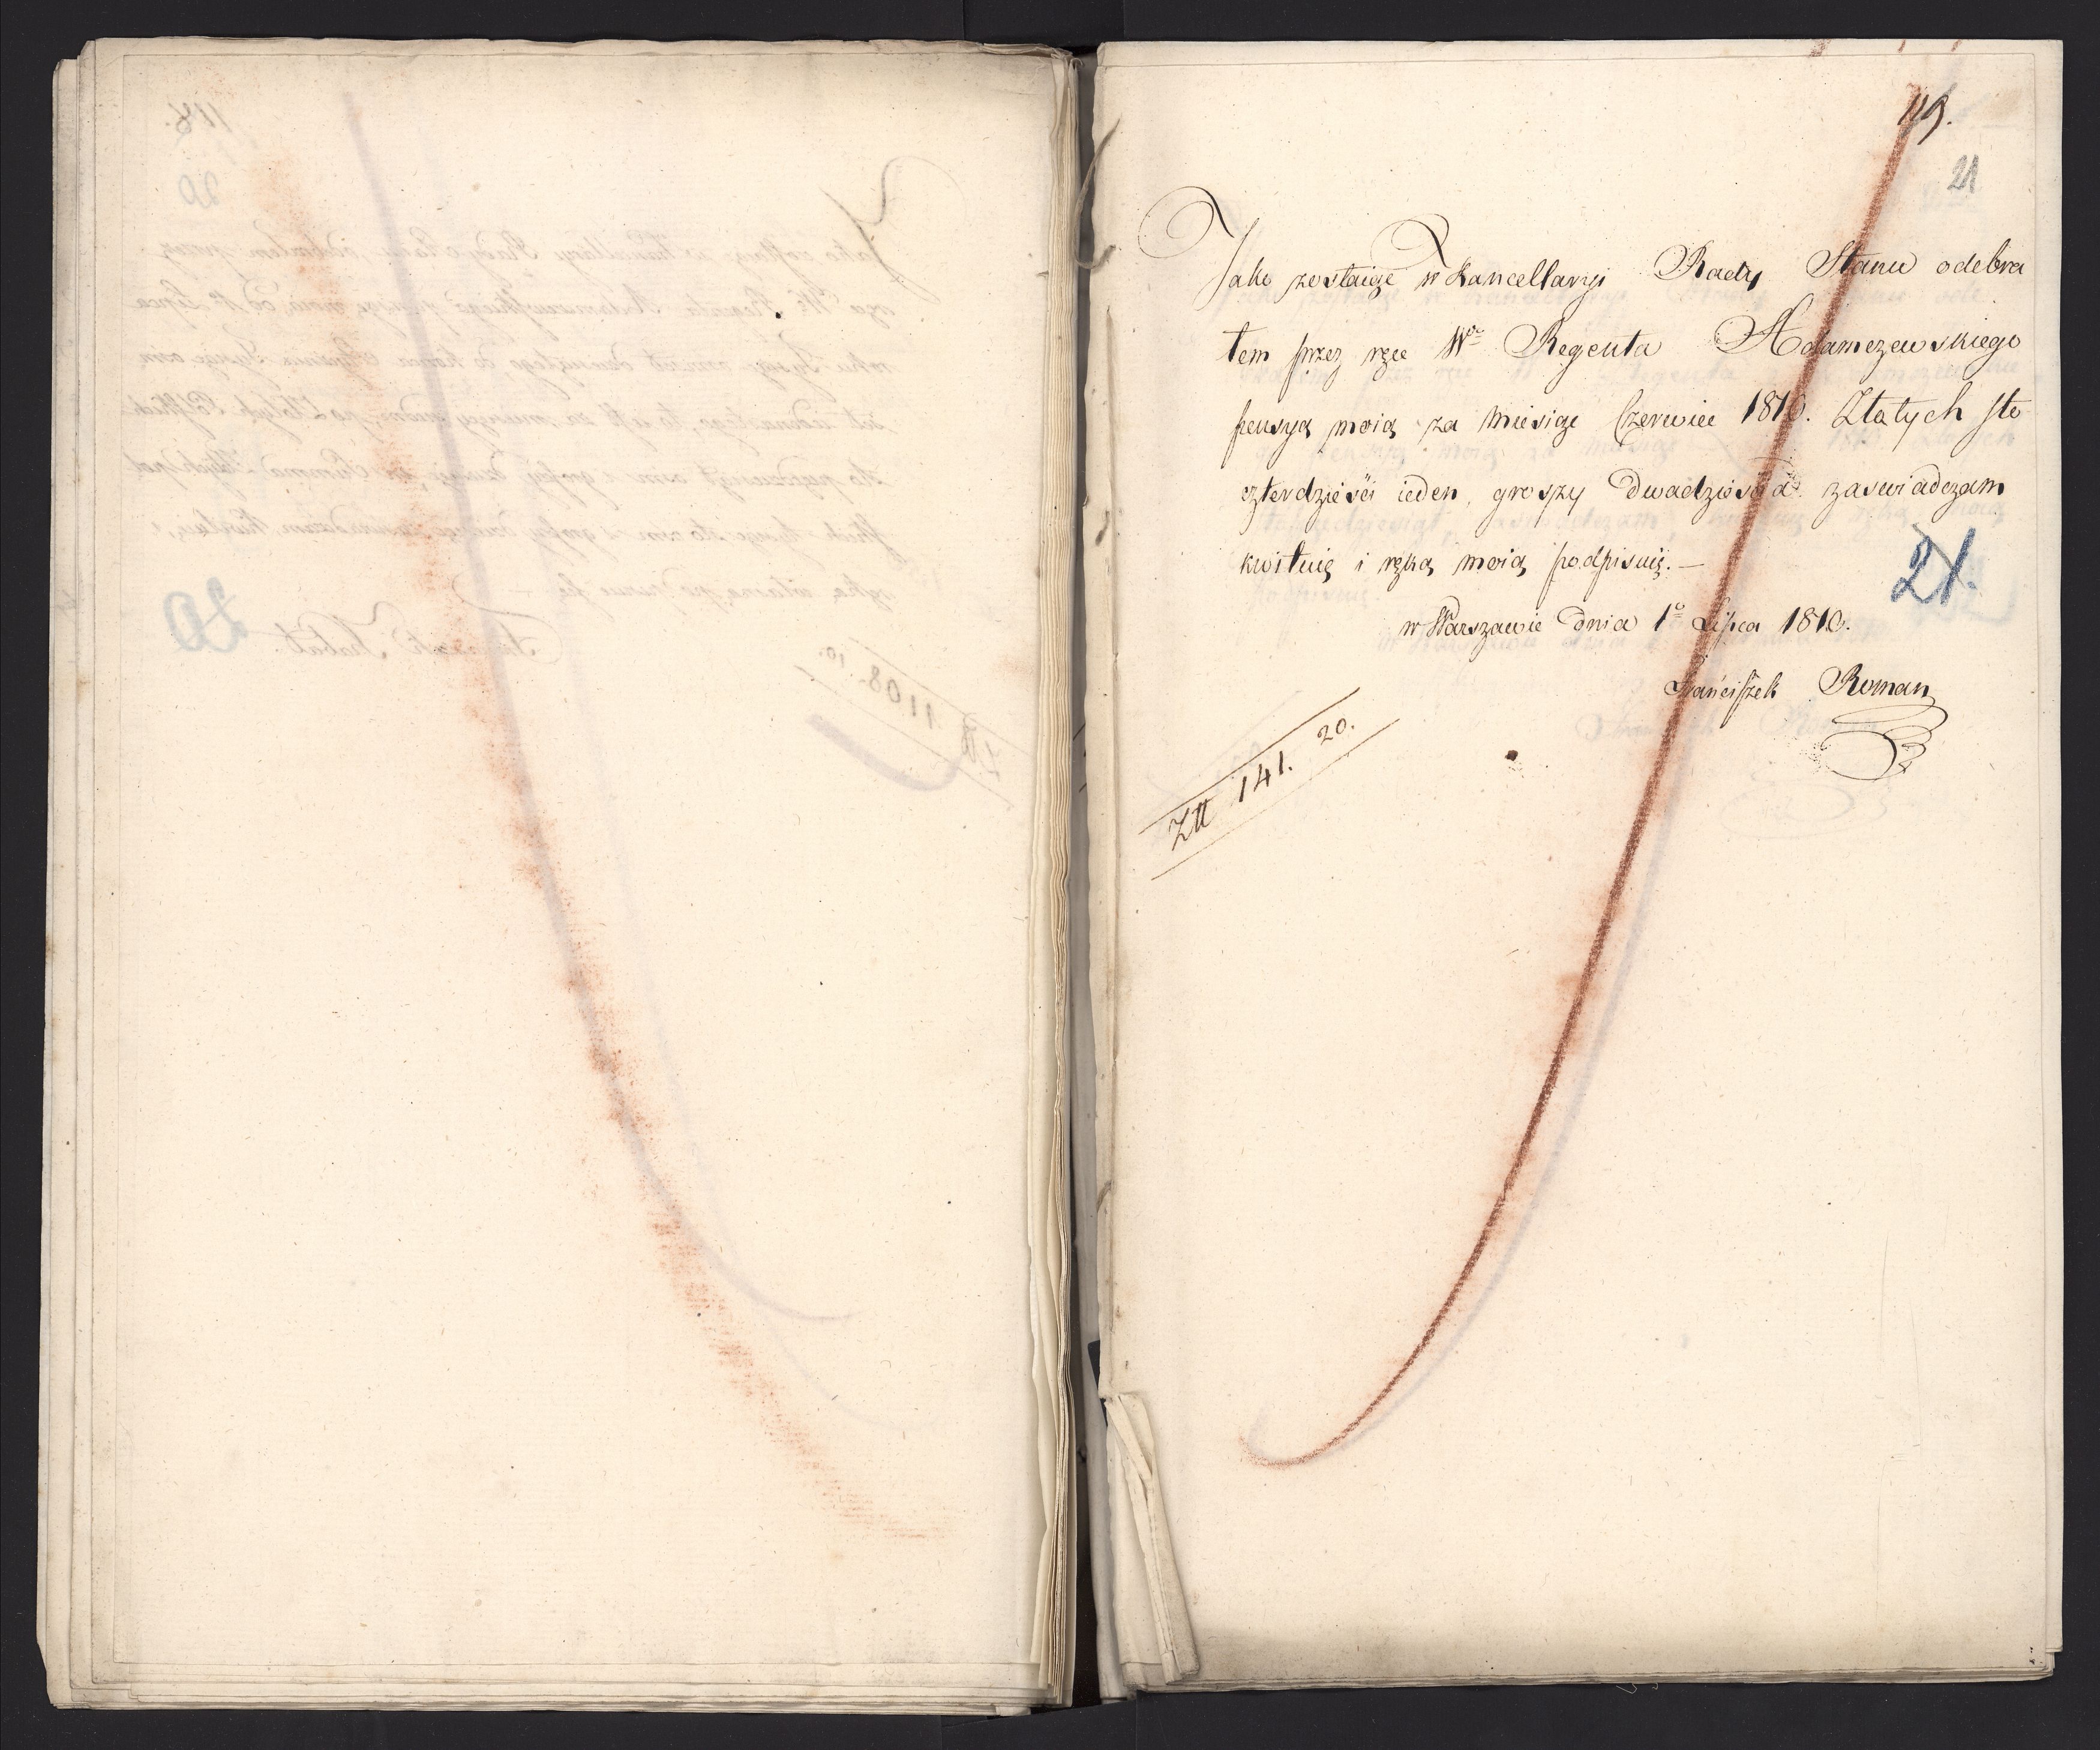 119.
21
Jako zostaiąc w Kancellaryi Rady Stanu odebra
łem przez ręce Wo Regenta Adamczewskiego
pensyą moią za Miesiąc Czerwiec 1810. Złotych sto
czterdzieści ieden, groszy dwadzieścia zaswiadczam
kwituię i ręką moią podpisuię. —
21.
w Warszawie Dnia 1o Lipca 1810.
Franciszek Roman
Złł 141. 20.